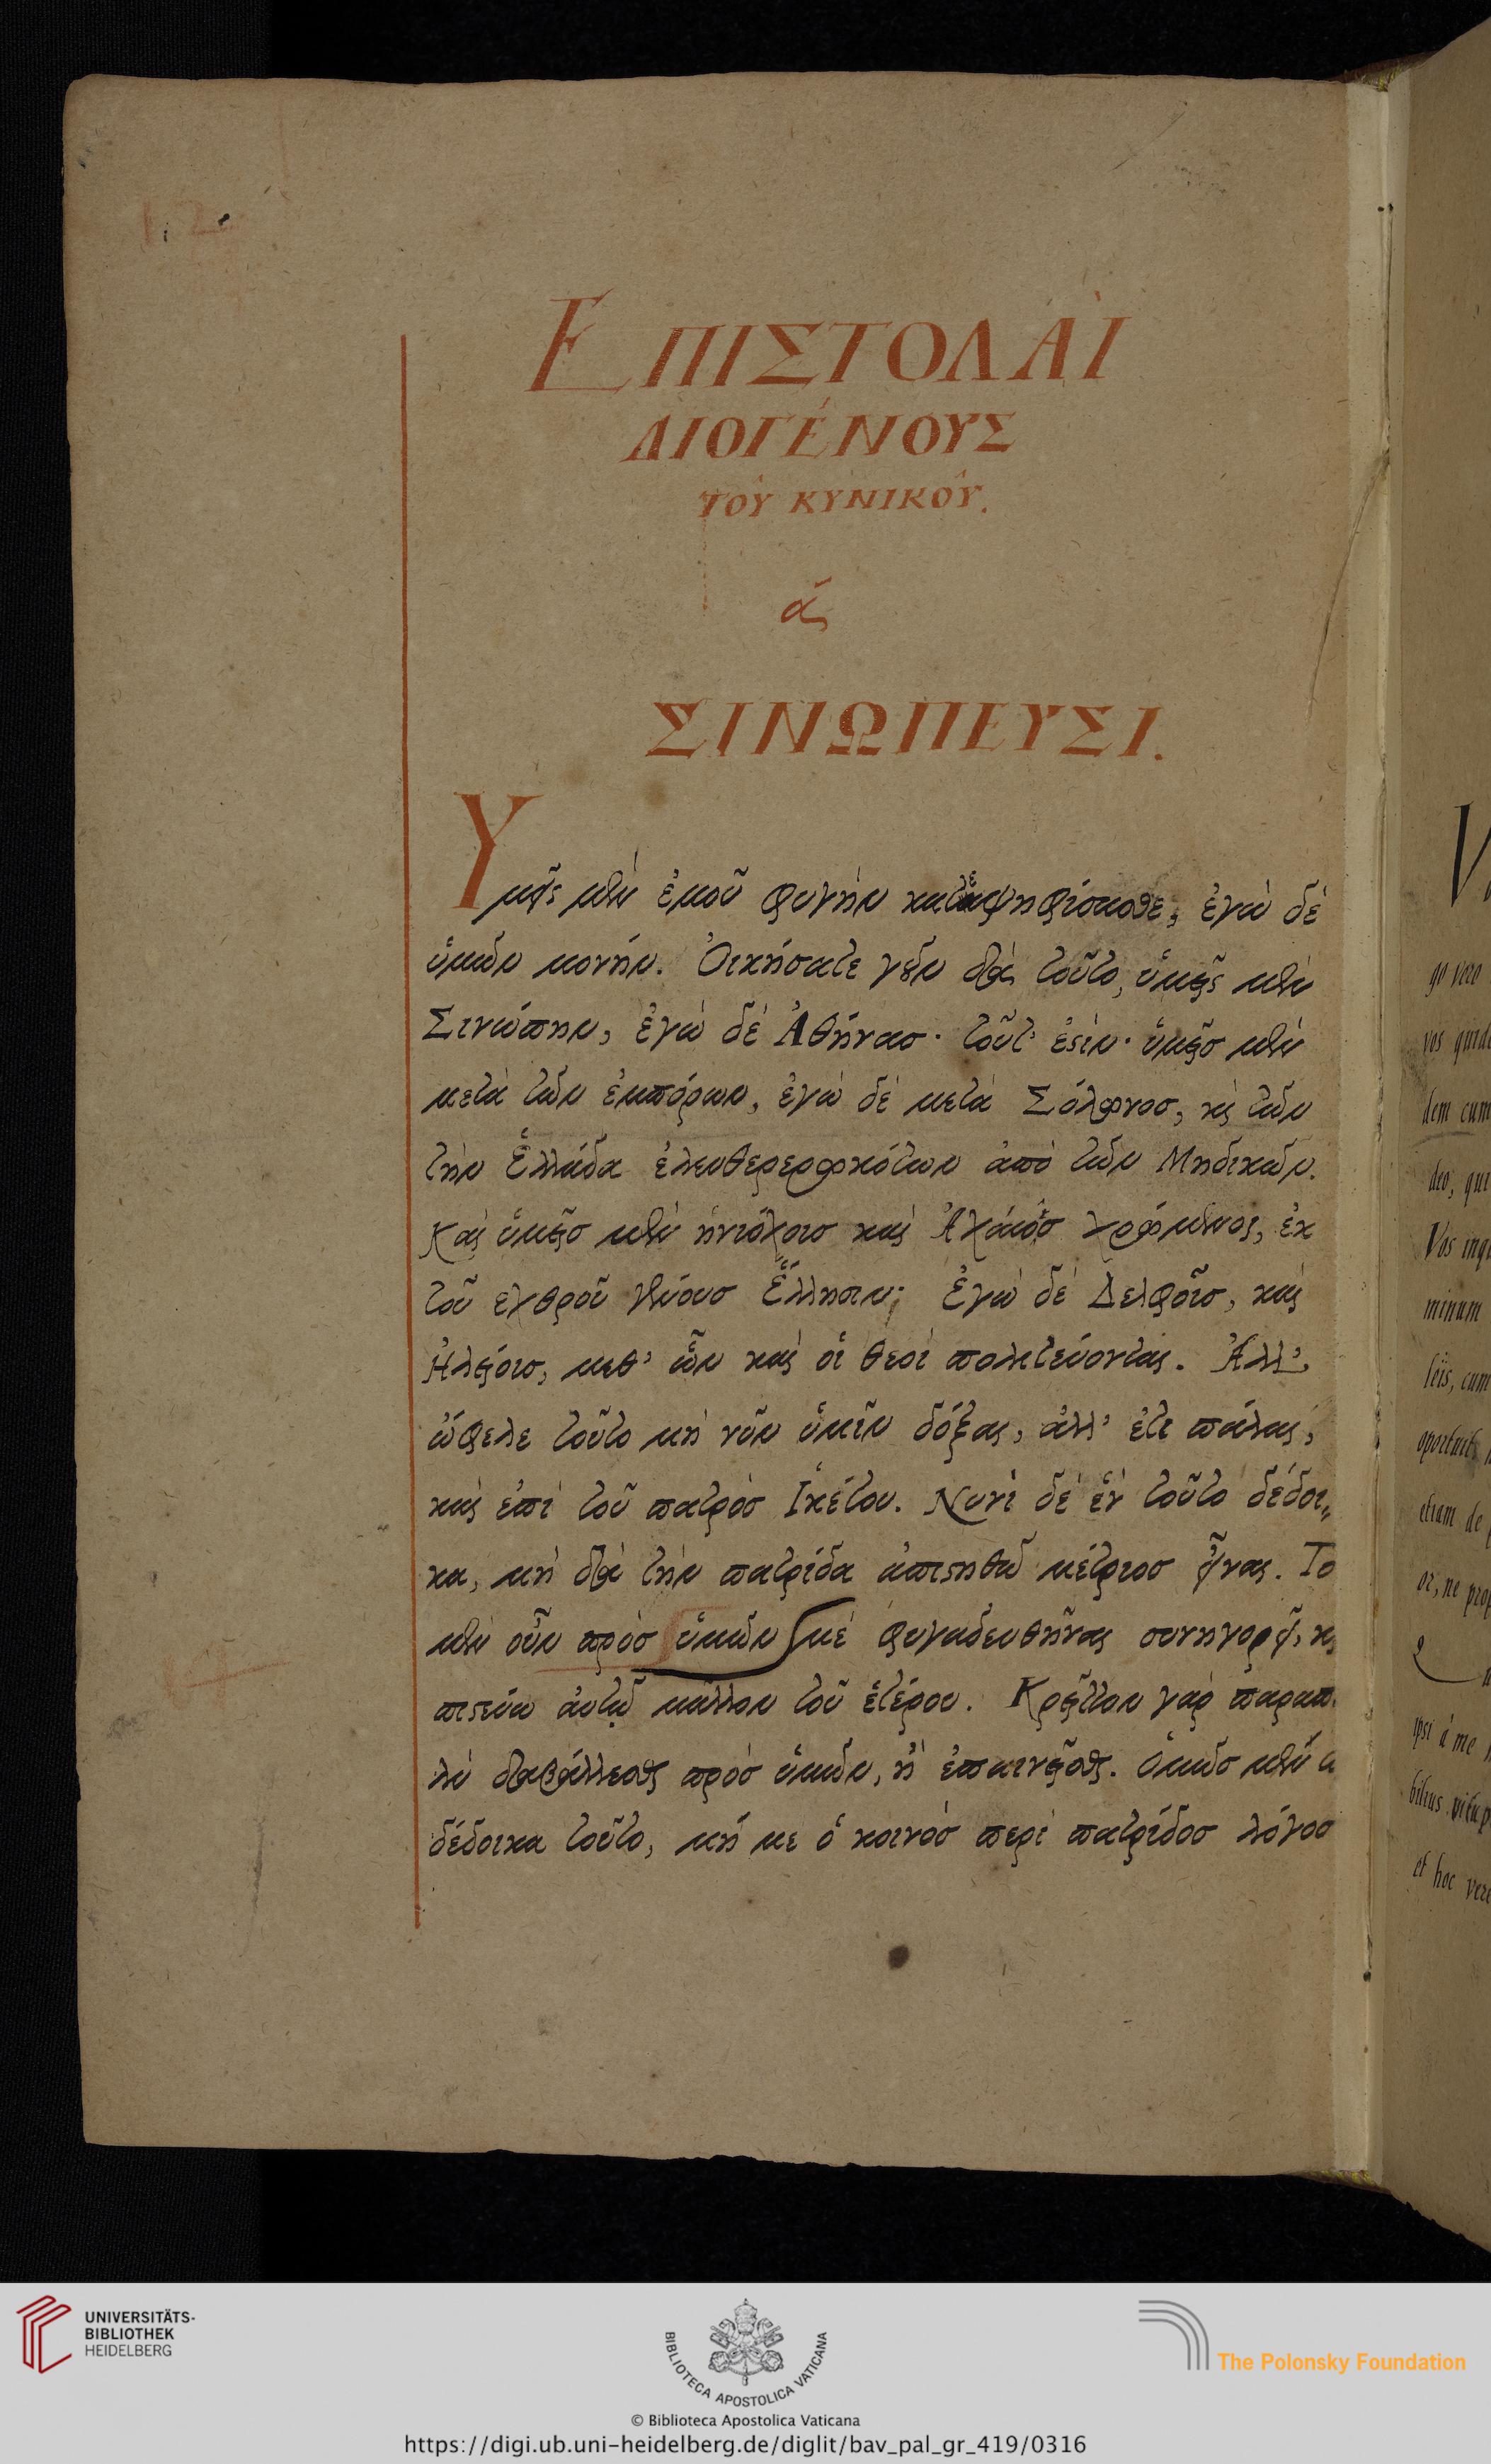 ΕΠΙΣΤΟΛΑῚ
ΔΙΟΓΈΝΟΥΣ
ΤΟΥ͂ ΚΥΝΙΚΟΥ͂.
ά
ΣΙΝΩΠΕΥΣΙ.
Υμεῖς μὲν ἐμοῦ φυγὴν κατεψηφίσασθε, ἐγὼ δὲ
ὑμῶν μονήν. Ὀικήσατε γοῦν διὰ τοῦτο, ὑμεῖς μὲν
Σινώπην, ἐγὼ δὲ Ἀθήνασ· τοῦτ' ἐστὶν· ὑμεῖσ μὲν
μετὰ τῶν ἐμπόρων, ἐγὼ δὲ μετὰ Σόλωνοσ, καὶ τῶν
τὴν Ἑλλάδα ἐλευθερερωκότων ἀπὸ τῶν Μηδικῶν.
Καὶ ὑμεῖσ μὲν ἡνιόχοισ καὶ Ἀχαιοῖσ χρώμενοι, ἐκ
τοῦ εχθροῦ γένουσ Ἕλλησιν; Ἐγὼ δὲ Δελφοῖσ, καὶ
Ἠλείοισ, μεθ' ὧν καὶ οἱ θεοὶ πολιτεύονται. Ἀλλ',
ὤφελε τοῦτο μὴ νῦν ὑμῖν δόξαι, ἀλλ' ἔτι πάλαι,
καὶ ἐπὶ τοῦ πατρὸσ Ἱκέτου. Νυνὶ δὲ ἓν τοῦτο δέδοι„
κα, μὴ διὰ τὴν πατρίδα ἀπιστηθῶ μέτριοσ εἶναι. Το
μὲν οὖν πρὸσ ὑμῶν μὲ φυγαδευθῆναι συνηγορεῖ, κ
πιστεύω ἀυτῷ μᾶλλον τοῦ ἑτέρου. Κρεῖττον γαρ παραπ
λὺ διαβάλλεσθαι πρὸσ ὑμῶν, ἢ ἐπαινεῖσθαι. Ὁμῶσ μὲν
δέδοικα τοῦτο, μή με ὁ κοινὸσ περὶ πατρίδοσ λόγοσ
go vero
vos quid
dem cum
deo, qui
Vos inq
minum
leis, cum
oportuit
etiam de
or, ne prop
ipsi à me
bilius vitup
et hoc vere
UNIVERSITÄTS-
BIBLIOTHEK
HEIDELBERG
BIBLIOTECA APOSTOLICA VATICANA
The Polonsky Foundation
© Biblioteca Apostolica Vaticana
https://digi.ub.uni-heidelberg.de/diglit/bav_pal_gr_419/0316